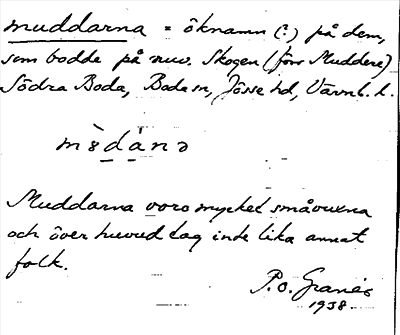 muddarna = öknamn (?) på dem,
som bodde på nuv. Skogen (förr Muddere)
Södra Boda, Boda sn, Jösse hd, Värml. l.
mɞ̀dánə
Muddarna voro mycket småvuxna
och över huvud tag inte lika annat
folk.
P.O. Granér
1938.